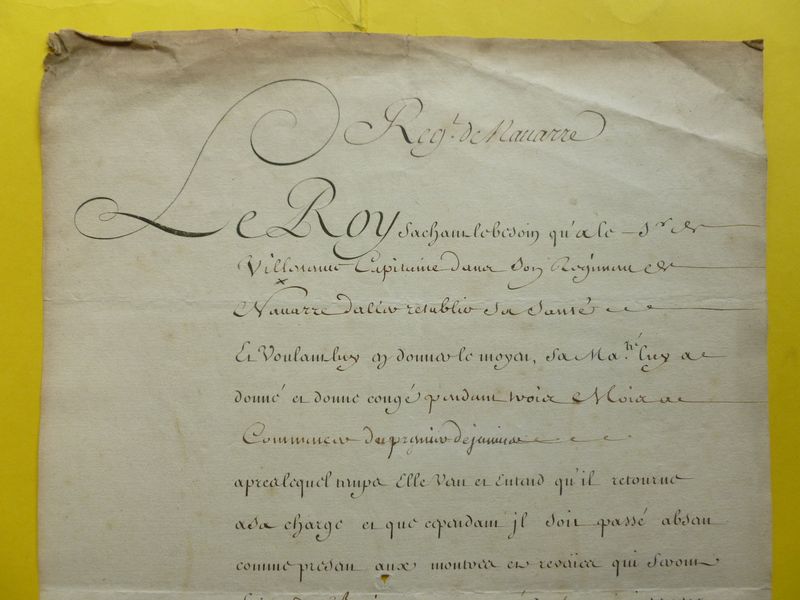 Reg.t de Nauarre
Le Roy sachant le besoin qu'a le Sr de
Capitaine dans son Regiment de
Nauarre d'aller retablir sa santé
Et Voulant luy en donner le moyen, sa Ma.té luy a
donné et donne congé pendant trois Mois a
Commencer du premier de januier
apres lequel temps Elle Veut et Entend qu'il retourne
a sa charge et que cependant jl soit passé absent
comme present aux montres et reveües qui seront